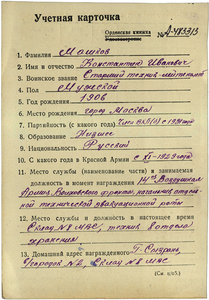 Учетная карточка
Орденская книжка
№ А-483313
1. Фамилия Машков
2. Имя и отчество Константин Иванович
3. Воинское звание Старший техник-лейтенант
4. Пол Мужской
5. Год рождения 1906
6. Место рождения город Москва
7. Партийность (с какого года) Член ВКП(б) с
8. Образование Низшее
9. Национальность Русский
10. С какого года в Красной Армии с XI-1929 года
11. Место службы (наименование части) и занимаемая
должность в момент награждения Воздушная
Армия, фронта,
технической роты
12. Место службы и должность в настоящее время
Склад №8 МВС, техник отдела
хранения
13. Домашний адрес награжденного г. Сызрань,
Городок №2, Склад №8 МВС
(См. на об.)